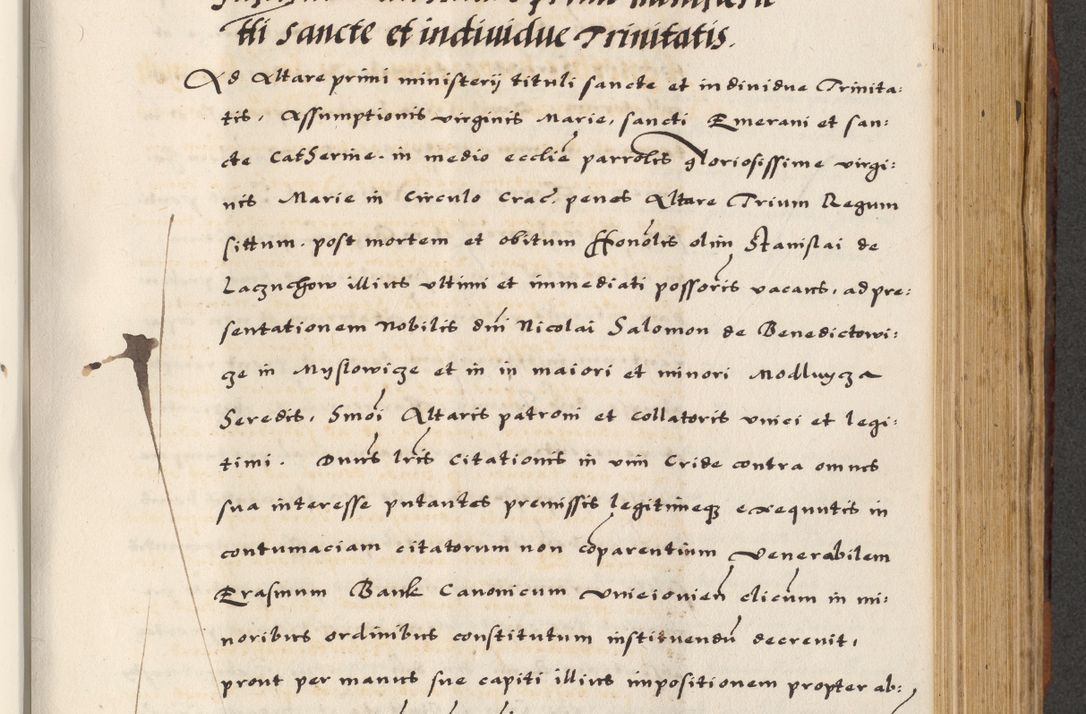 tti sancte et individue Trinitatis.
Ad Altare primi ministerij tituli sancte et individue Trinita:
tis, Assumptionis virginis Marie, sancti Emerani et san:
cte Catherine. in medio ecclie parrolis gloriosissime virgi:
nis Marie in Circulo Crac. penes Altare Trium Regum
sittum. post mortem et obitum Honolis olim Stanislai de
Lacznchow illius vltimi et immediati possoris vacans, ad pre:
sentationem Nobilis dni Nicolai Salomon de Benedictowi:
cze in Myslowicze et in in maiori et minori Modluycza
Heredis, Smoi Altaris patroni et collatoris vnici et legi:
timi. Dnus lris Citationis in vim Cride contra omnes
sua interesse putantes premissis legitimeq exequutis in
contumaciam citatorum non coparentium Venerabilem
Erasmum Bank Canonicum Vniciovien clicum in mi:
noribus ordinibus constitutum instituendu decrevit,
prout per manus sue capiti illius impositionem propter ab: